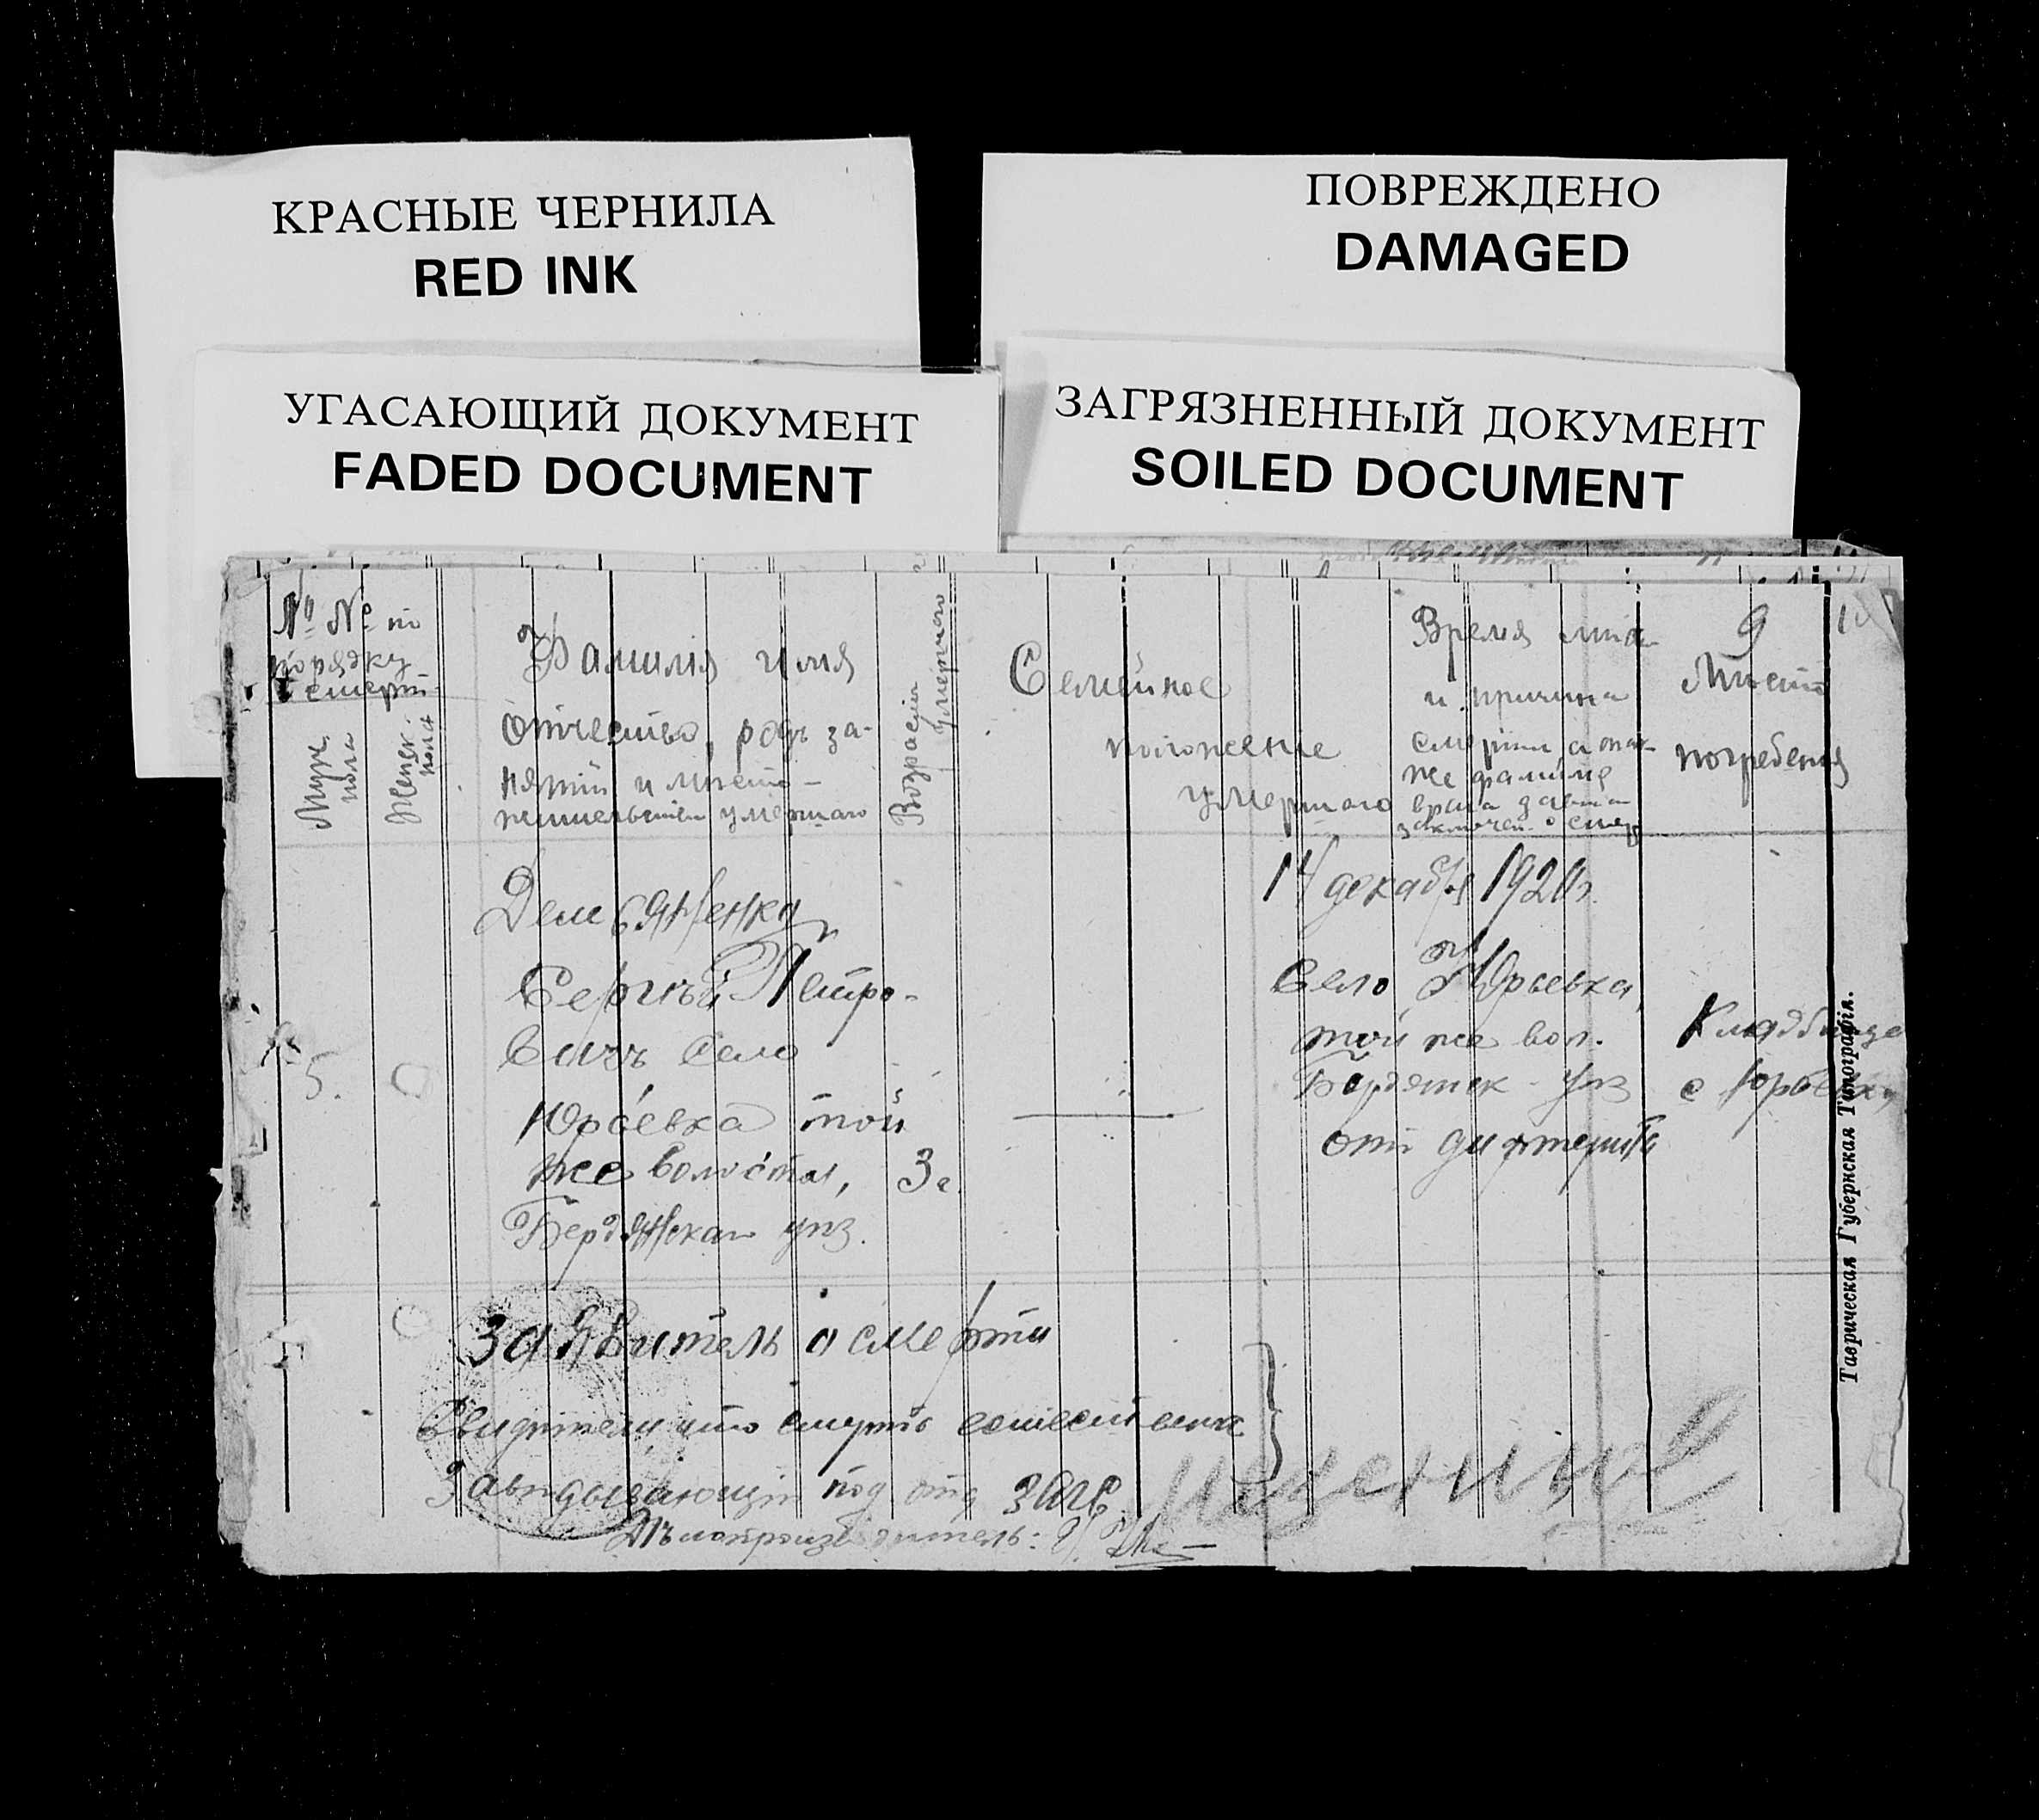 КРАСНЫЕ ЧЕРНИЛА
RED INK
ПОВРЕЖДЕНО
DAMAGED
УГАСАЮЩИЙ ДОКУМЕНТ
FADED DOCUMENT
ЗАГРЯЗНЕННЫЙ ДОКУМЕНТ
SOILED DOCUMENT
№ № по
порядку
смерт.
Муж. пола
Женск. пола
Фамилія имя
отчество, родъ за-
нятій и мѣсто-
жительство умершаго
Возрастъ умершаго
Семейное
положение
умершаго
Время мѣс
и причина
смерти а так
же фамилія
врача давша
заключен. о смер
9
Мѣсто
погребенія
10
Демьяненко
Сергѣй Петро-
вичъ село
Юрьевка той
же волости,
Бердянскаго уѣз.
5.
3 г.
14 декабря 1920 г.
Село Юрьевка,
той же вол.
Бердянск. уѣз
отъ дифтерита
Кладбище
с Юрьевка
Заявитель о смерти
Свидѣтели что смерть естественна
Завѣдывающій под отд ЗАГС
Дѣлопроизводитель:
Таврическая Губернская Типографія.